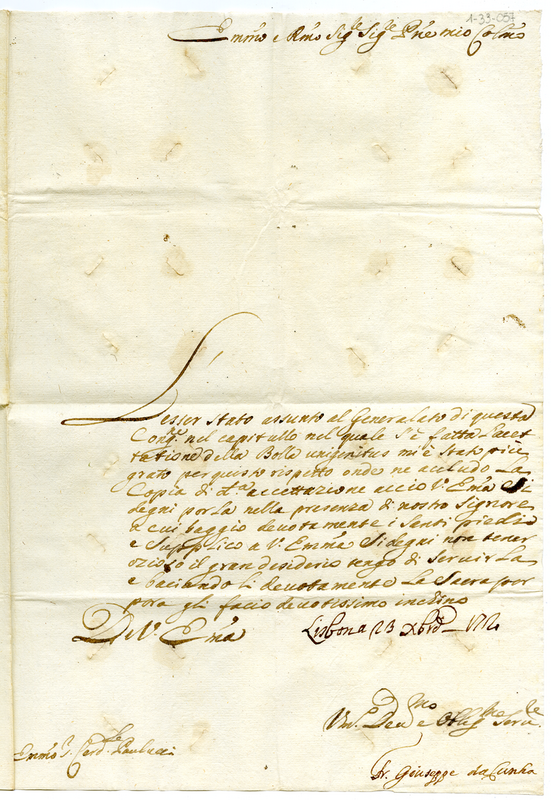 1-33-057
Emmo e Rmo Sig.re Sig.re Pne mio Colmo
L'esser stato assunto al Generalato di questa
Cong.ne nel capitullo nel quale s'è fatta l'accet-
tatione della Bolla unigenitus mi è stato più
grato per questo rispetto onde ne accludo La
Copia di d.a accettazione acciò V.a Ema si
degni porLa nella presenza di nostro Signore
a cui baggio devotamente i Santi piedi
e Supplico a V.a Emma Si degni non tener
ozioso il gran desiderio tengo di servirLa
e baciando li devotamente La Sacra por
pora gli facio devotissimo inchino
Di V.a Ema Lisbona 23 Xbre 1712
Devmo e Obligmo Serv.e
Emmo S. Card.le Paulucci
Fr. Giuseppe da Cunha